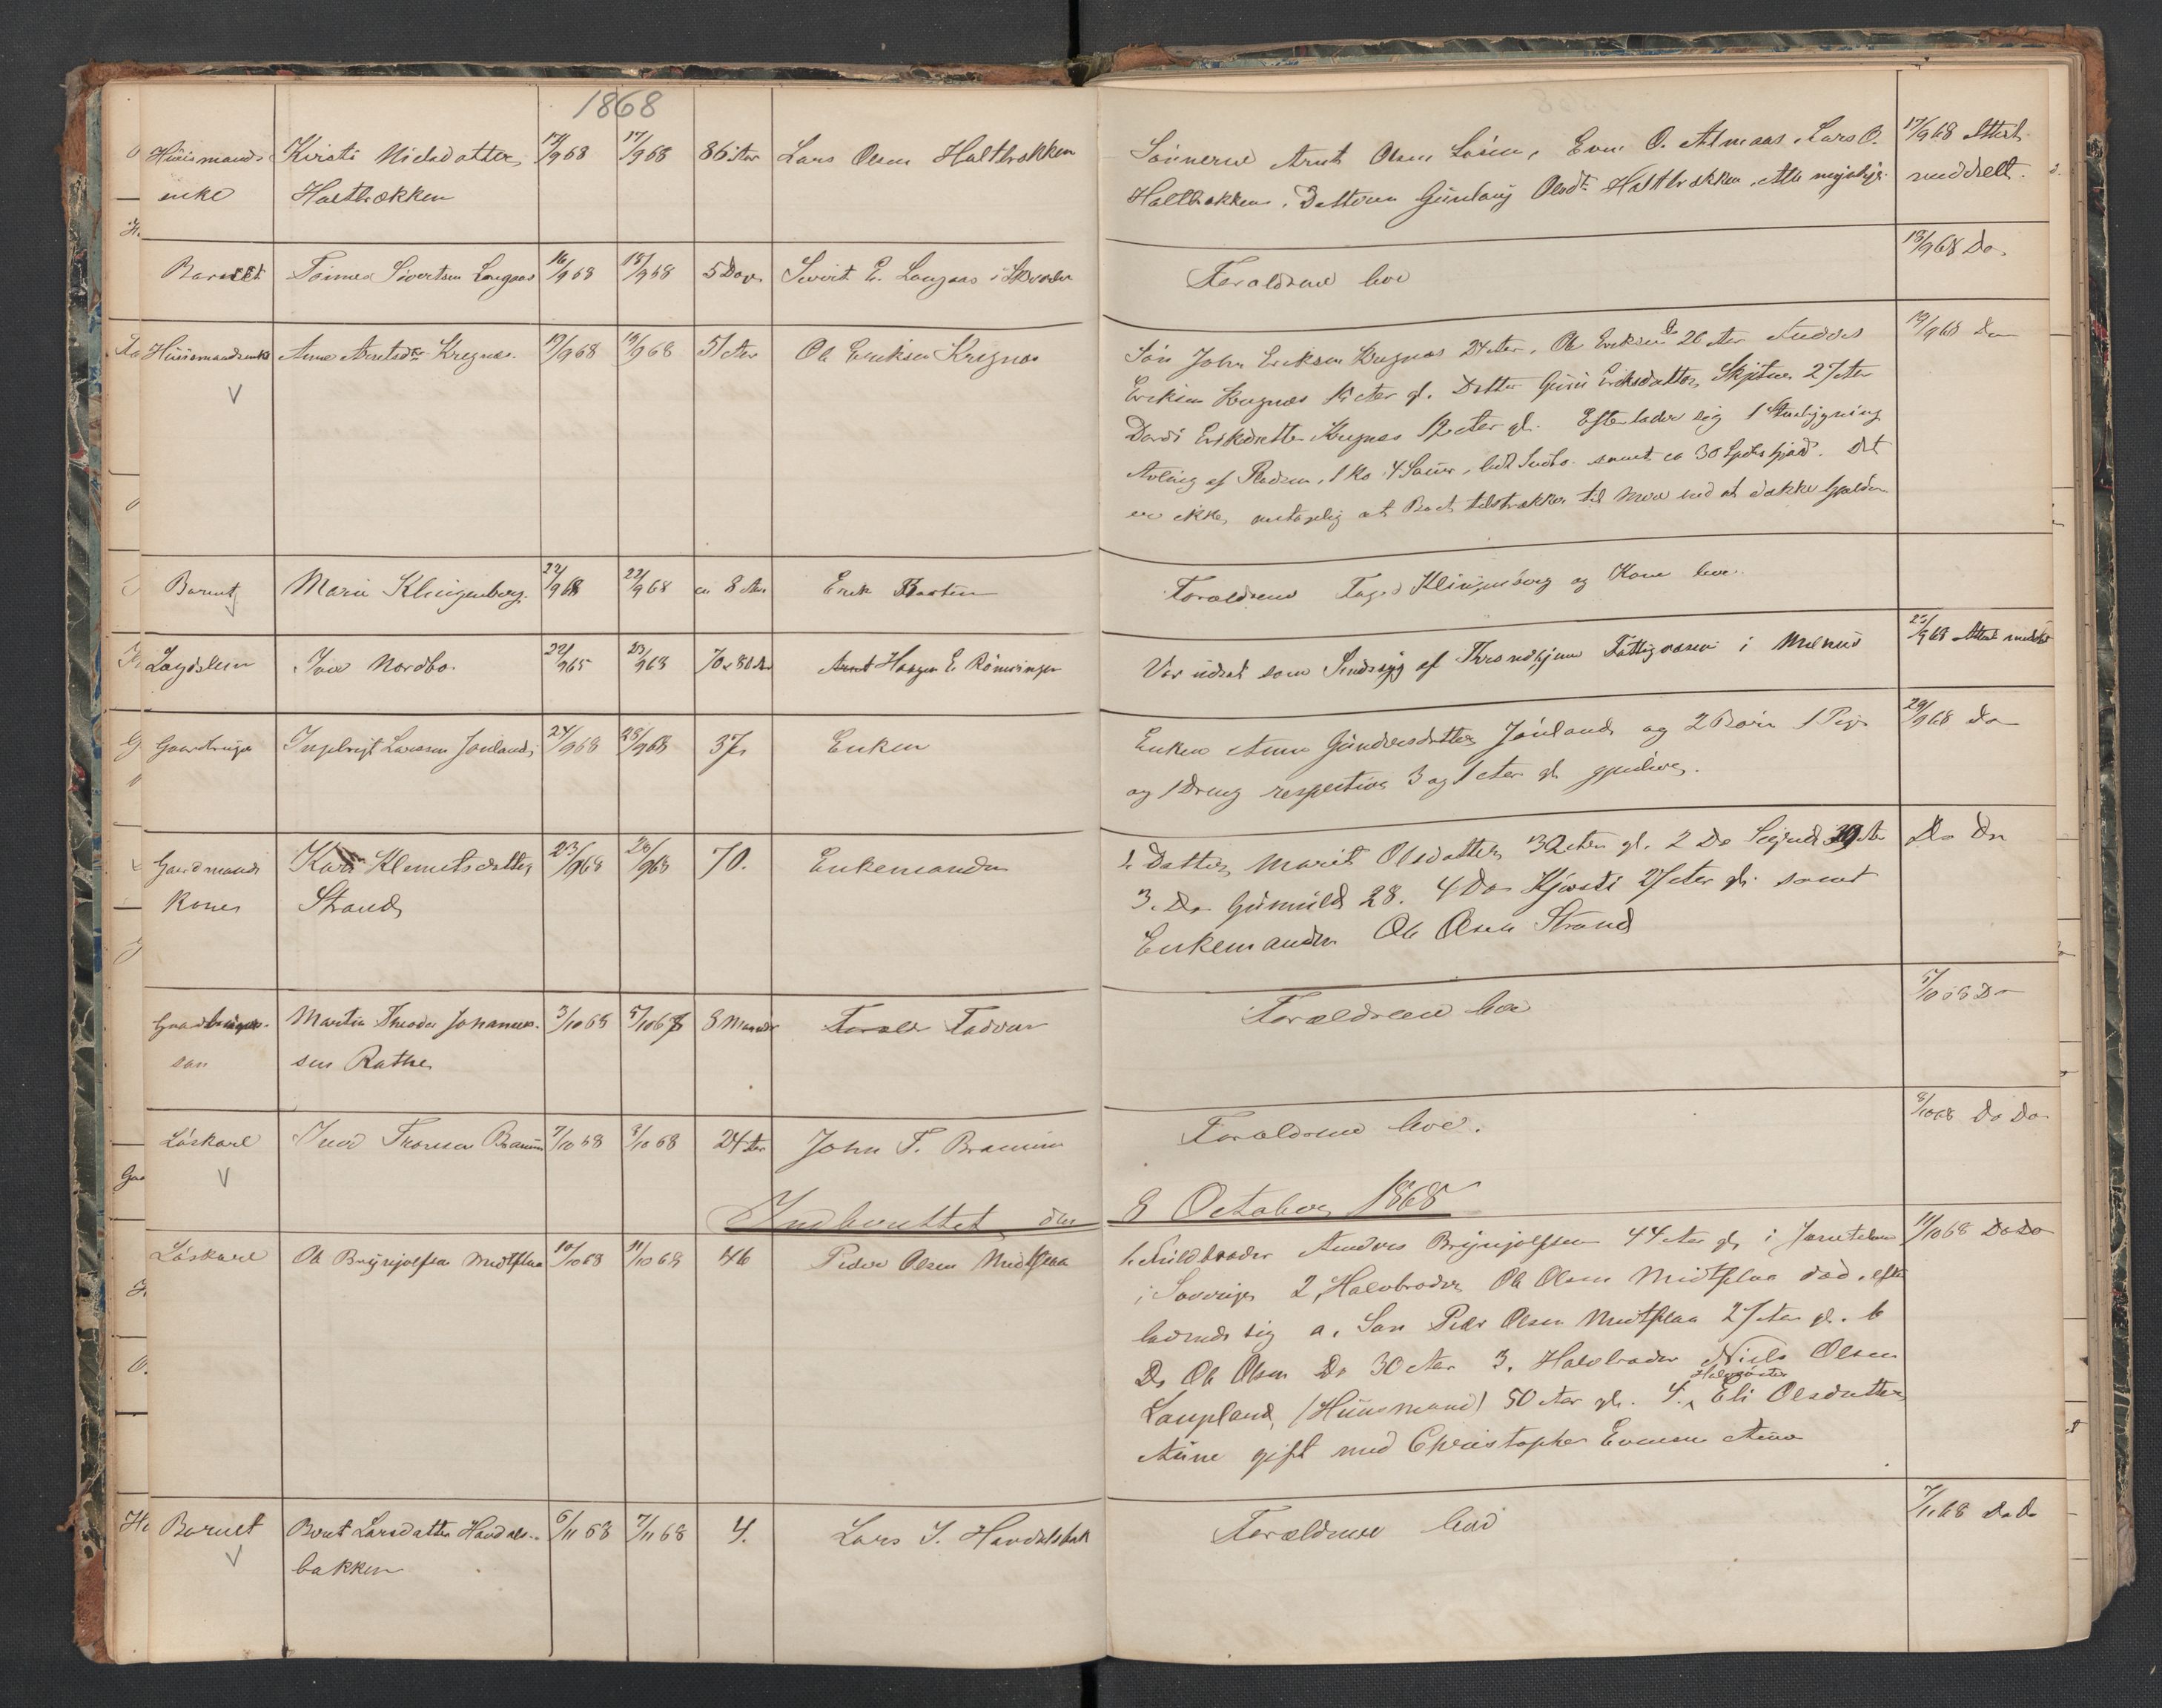 1868
Huusmands Kirsti Nielsdatter 17/9 68 17/9 68 86 Aar Lars Olsen Haltbakken Sönnerne Arnt Olsen Losen, Even O. Almaas, Lars O. 17/9 68 Attest
enke Haltbakken Haltbakken. Datteren Gunlaug Olsdt. Haltbakken. Alle myndige meddelt.
Barnet Sivertsen Langaas 16/9 68 18/9 68 5 Dage Sivert E. Langaas i Forældrene leve 18/9 68 Do
Huusmandsenke Anne Arntsdr Kregnæs. 17/9 68 19/9 68 51 Aar Ole Eriksen Kregnæs Sön John Eriksen Kregnæs 24 Aar, Ole Eriksen Do 20 Aar Anders 19/9 68 Do
V Eriksen Kregnæs Aar gl. Datter Guru Eriksdatter 27 Aar
Eriksdatter Kregnæs 12 Aar gl. Efterlader sig 1 Stuebygning
Avling af Pladsen, 1 Ko 4 Sauer, lidt Indbo samt ca 30 Spdlr Gjæld. Det
er ikke antagelig at Boet tilstrækker til mere end at dække Gjælden
Barnet Marie Klingenberg 22/9 68 22/9 68 ca 8 Aar Erik Forældrene Klingenberg og Kone leve.
Lægdslem Nordbo. 22/9 65 23/9 68 70 a 80 Aar Haagen E. Rönningen Var udsat som Sindssyg af Throndhjems Fattigvæsen i Melhus 23/9 68 Attest meddelt
Gaardbruger Ingebrigt Larssen Jonland 24/9 68 28/9 68 37 Enken Enken Anne Gundersdatter Jonland og 2 Börn 1 Pige 29/9 68 Do
og 1 Dreng respective 3 og 1 Aar gl. gjenlever.
Gaardmands Kari Klemetsdatter 23/9 68 28/9 68 70. Enkemanden 1. Datter Marit Olsdatter 32 Aar gl. 2 Do Sigrid 30 Aar Do Do
Kone Strand 3. Do Gunnild 28. 4 Do Kjersti 27 Aar gl. samt
Enkemanden Ole Olsen Strand
Gaardbruger- Martin Theodor Johannes- 3/10 68 5/10 68 8 Maaneder Faderen Forældrene leve 5/10 68 Do
sön sen Rathe
Löskarl Bramu 7/10 68 8/10 68 24 Aar John T. Forældrene leve. 8/10 68 Do Do
V
Indberettet den 8 October 1868
Löskarl Ole Brynjolfsen Midtflaa 10/10 68 11/10 68 46 Peder Olsen Midtflaa 1. Fuldbroder Anders Brynjolfsen 44 Aar gl. i Jemteland 11/10 68 Do Do
i Sverige 2, Halvbroder Ole Olsen Midtflaa död, efter
ladende sig a. Sön Peder Olsen Midtflaa 27 Aar gl. b
Do Ole Olsen Do 30 Aar 3. Halvbroder Niels Olsen
Laupland, (Huusmand) 50 Aar gl. 4. Halvsöster Eli Olsdatter
Aune gift med Christopher Evensen Aune
Barnet Beret Larsdatter Havdals- 6/11 68 7/11 68 4. Lars J. Havdalsbak Forældrene leve 7/11 68 Do Do
V bakken